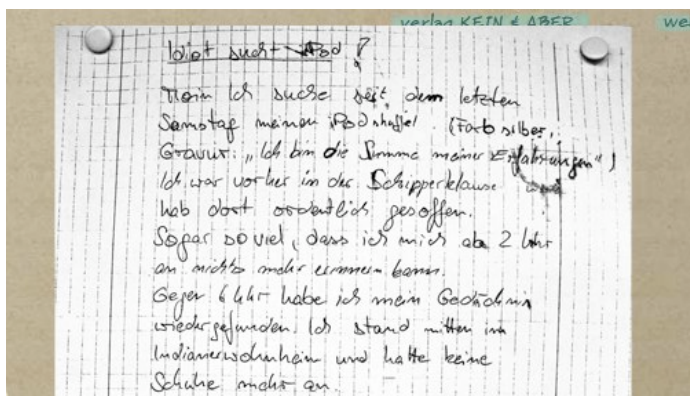 verlag KEIN & ABER
we
Idiot sucht iPod?
Moin Ich suche seit dem letzten
Samstag meinen iPod shuffel. (Farb silber,
Gravur: „Ich bin die Summe meiner Erfahrungen")
Ich war vorher in der Schipperklause
hab dort ordentlich gesoffen.
Sogar so viel, dass ich mich ab 2 Uhr
an nichts mehr erinnern kann.
Gegen 6 Uhr habe ich mein Gedächnis
wiedergefunden. Ich stand mitten im
Indianerwohnheim und hatte keine
Schuhe mehr an.